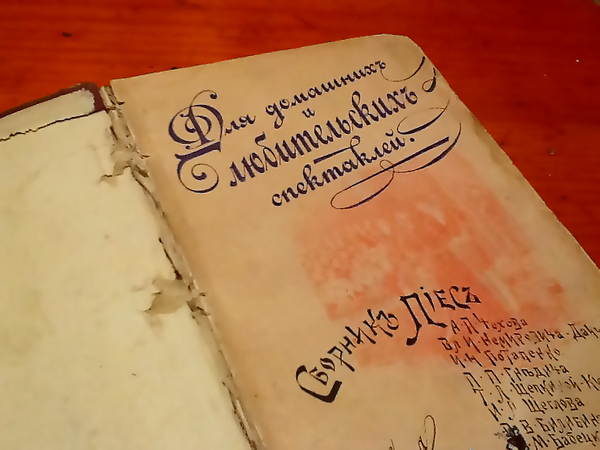 Для домашнихъ
и
любительскихъ
спектаклей.
Сборникъ Пiесъ
А. П. Чехова
Вл. И. Немировича-Дан
И. Н. Потапенко
П. П. Гнѣдича
Т. Л. Щепкиной-К
И. Л. Щеглова
В. В. Билибин
М. Бабецк